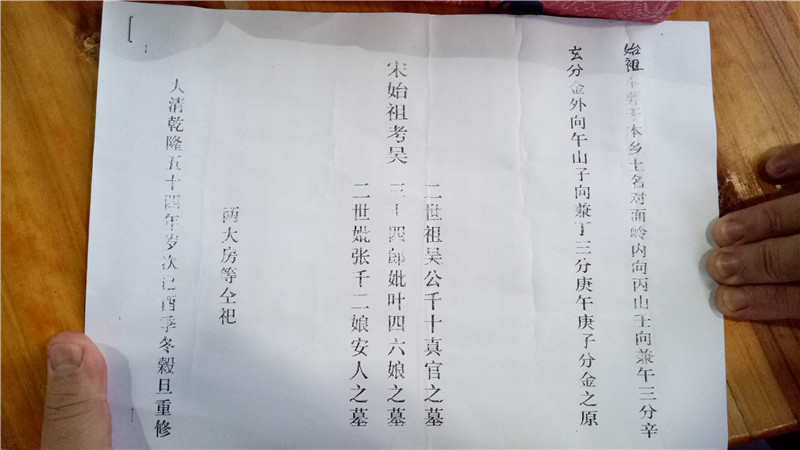 始祖本葬于本乡土名对面岭内向丙山壬向兼午三分辛
玄分金外向午山子向兼丁三分庚午庚子分金之原
二世祖吴公千十真官之墓
宋始祖考吴三十四郎妣叶四六娘之墓
二世妣张千二娘安人之墓
两大房等仝祀
大清乾隆五十四年岁次己酉季冬榖旦重修